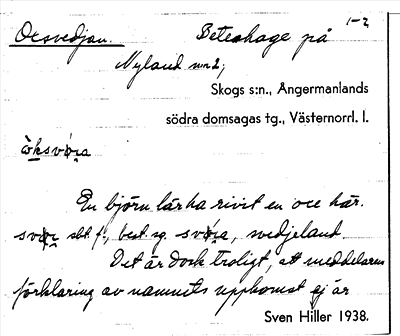 Oxsvedjan. Beteshage på 1-2
Nyland nr 2,
Skogs s:n., Ångermanlands
södra domsagas tg., Västernorrl. l.
En björn lär ha rivit en oxe här.
sbt f., best. sg. svedjeland.
Det är dock troligt, att meddelarens
förklaring av namnets uppkomst ej är
Sven Hiller 1938.